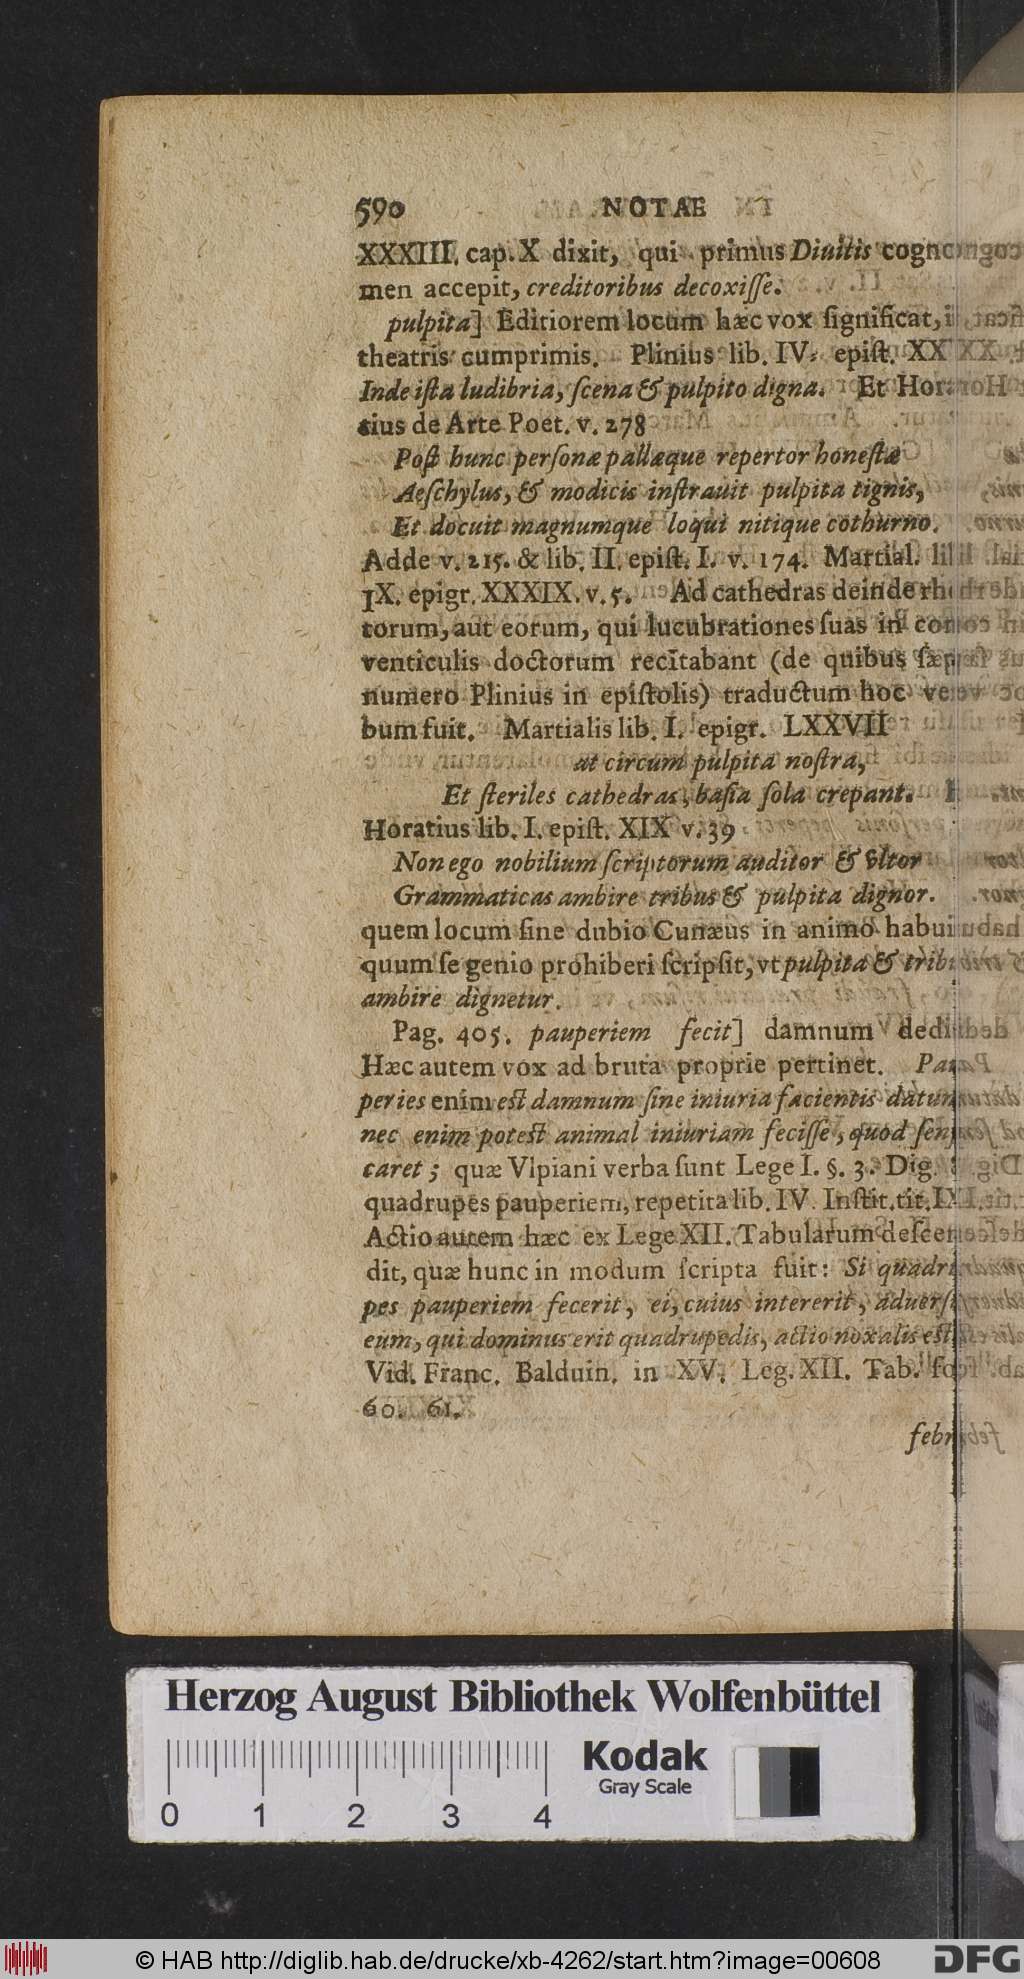 590 NOTAE
XXXIII. cap. X dixit, qui primus Diuitis cogno
men accepit, creditoribus decoxiſſe.
pulpita] Editiorem locum hæc vox ſignificat, i
theatris cumprimis. Plinius lib. IV. epiſt. XX
Inde iſta ludibria, ſcena & pulpito digna. Et Hora
tius de Arte Poet. v. 278
Poſt hunc perſonæ pallæque repertor honeſtæ
Aeſchylus, & modicis inſtrauit pulpita tignis,
Et docuit magnumque loqui nitique cothurno.
Adde v. 215. & lib. II. epiſt. I. v. 174. Martial. li
IX. epigr. XXXIX. v. 5. Ad cathedras deinde rhe
torum, aut eorum, qui lucubrationes ſuas in con
venticulis doctorum recitabant (de quibus ſæp
numero Plinius in epiſtolis) traductum hoc ver
bum fuit. Martialis lib. I. epigr. LXXVII
at circum pulpita noſtra,
Et ſteriles cathedras, baſia ſola crepant.
Horatius lib. I. epiſt. XIX v. 39
Non ego nobilium ſcriptorum auditor & vltor
Grammaticas ambire tribus & pulpita dignor.
quem locum ſine dubio Cunæus in animo habui
quum ſe genio prohiberi ſcripſit, vt pulpita & trib
ambire dignetur.
Pag. 405. pauperiem fecit] damnum dedi
Hæc autem vox ad bruta proprie pertinet. Pau
peries enim eſt damnum ſine iniuria facientis datum
nec enim poteſt animal iniuriam feciſſe, quod ſenſu
caret; quæ Vlpiani verba ſunt Lege I. §. 3. Dig.
quadrupes pauperiem, repetita lib. IV. Inſtit. tit. IX
Actio autem hæc ex Lege XII. Tabularum deſcen
dit, quæ hunc in modum ſcripta fuit: Si quadru
pes pauperiem fecerit, ei, cuius intererit, aduerſu
eum, qui dominus erit quadrupedis, actio noxalis eſt
Vid. Franc. Balduin. in XV. Leg. XII. Tab. fo
60. 61.
febr
Herzog August Bibliothek Wolfenbüttel
Kodak
Gray Scale
0 1 2 3 4
© HAB http://diglib.hab.de/drucke/xb-4262/start.htm?image=00608
DFG